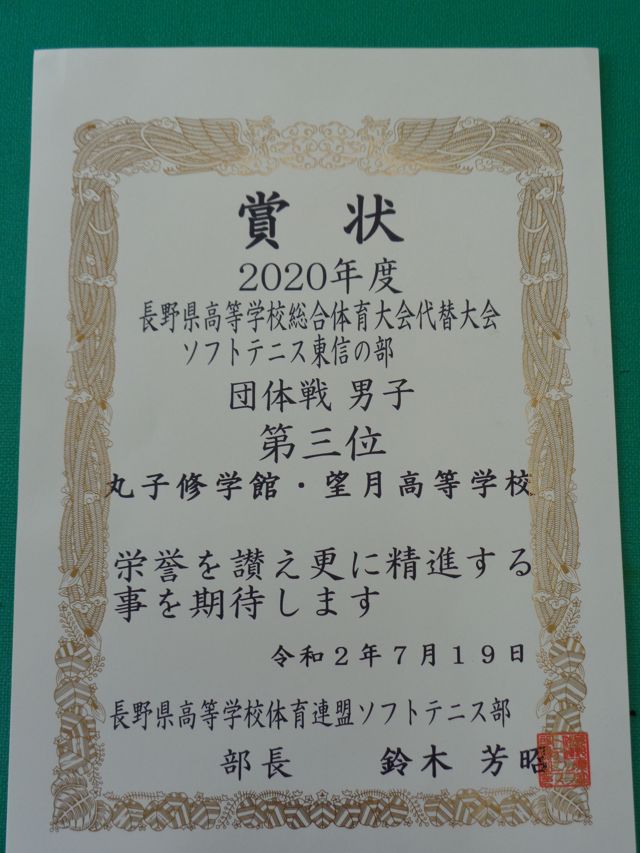 賞状
2020年度
長野県高等学校総合体育大会代替大会
ソフトテニス東信の部
団体戦 男子
第三位
丸子修学館・望月高等学校
栄誉を讃え更に精進する
事を期待します
令和2年7月19日
長野県高等学校体育連盟ソフトテニス部
部長 鈴木 芳昭